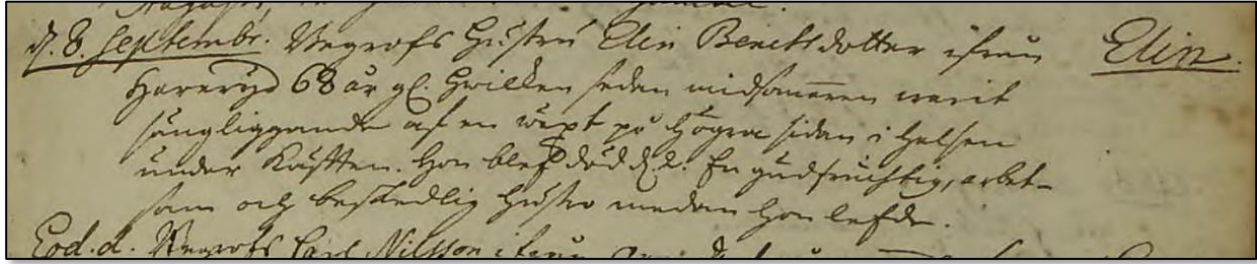 d. 8. Septembr. Begrofs Hustru Elin Bencktsdotter ifrån Elin.
Hareryd 68 år gl. Hwilken sedan midsommaren warit
sängliggande af en wäxt på högra sidan i halsen
under Käften. Hon blef död d. 2. En gudfruchtig, arbet-
sam och beskedlig hustro medan hon lefde.
Eod. d. Begrofs Carl Nilsson ifrån